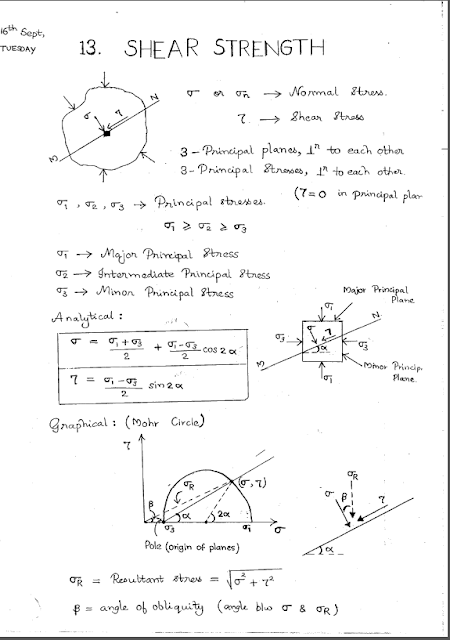 16th Sept,
TUESDAY
13. SHEAR STRENGTH
σ or σn → Normal Stress.
τ → Shear Stress
σ τ N M
3 - Principal planes, ⊥r to each other
3 - Principal Stresses, ⊥r to each other.
(τ=0 in principal plan
σ1, σ2, σ3 → Principal stresses.
σ1 ≥ σ2 ≥ σ3
σ1 → Major Principal Stress
σ2 → Intermediate Principal Stress
σ3 → Minor Principal Stress
Analytical :
σ = (σ1+σ3)/2 + (σ1-σ3)/2 cos 2α
τ = (σ1-σ3)/2 sin 2α
Major Principal
Plane
σ1 N
σ τ
σ3 α σ3
M
Minor Princip.
Plane.
σ1
Graphical : (Mohr Circle)
τ
σR (σ, τ)
β α 2α
σ3 σ1 σ
Pole (origin of planes)
σR
σ β τ
α
σR = Resultant stress = √(σ² + τ²)
β = angle of obliquity (angle b/w σ & σR)